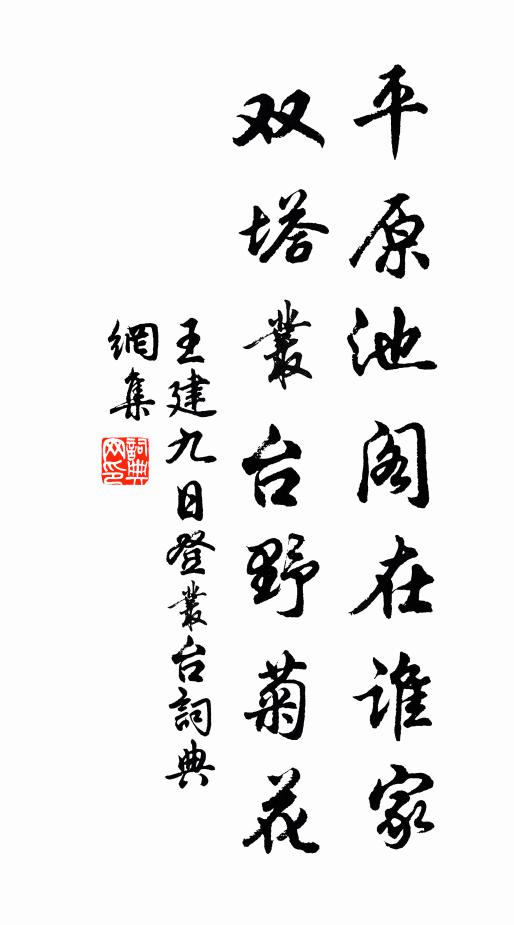 平原池阁在谁家
双塔叢台野菊花
王建九日登叢台詞典
網集
詞典網印